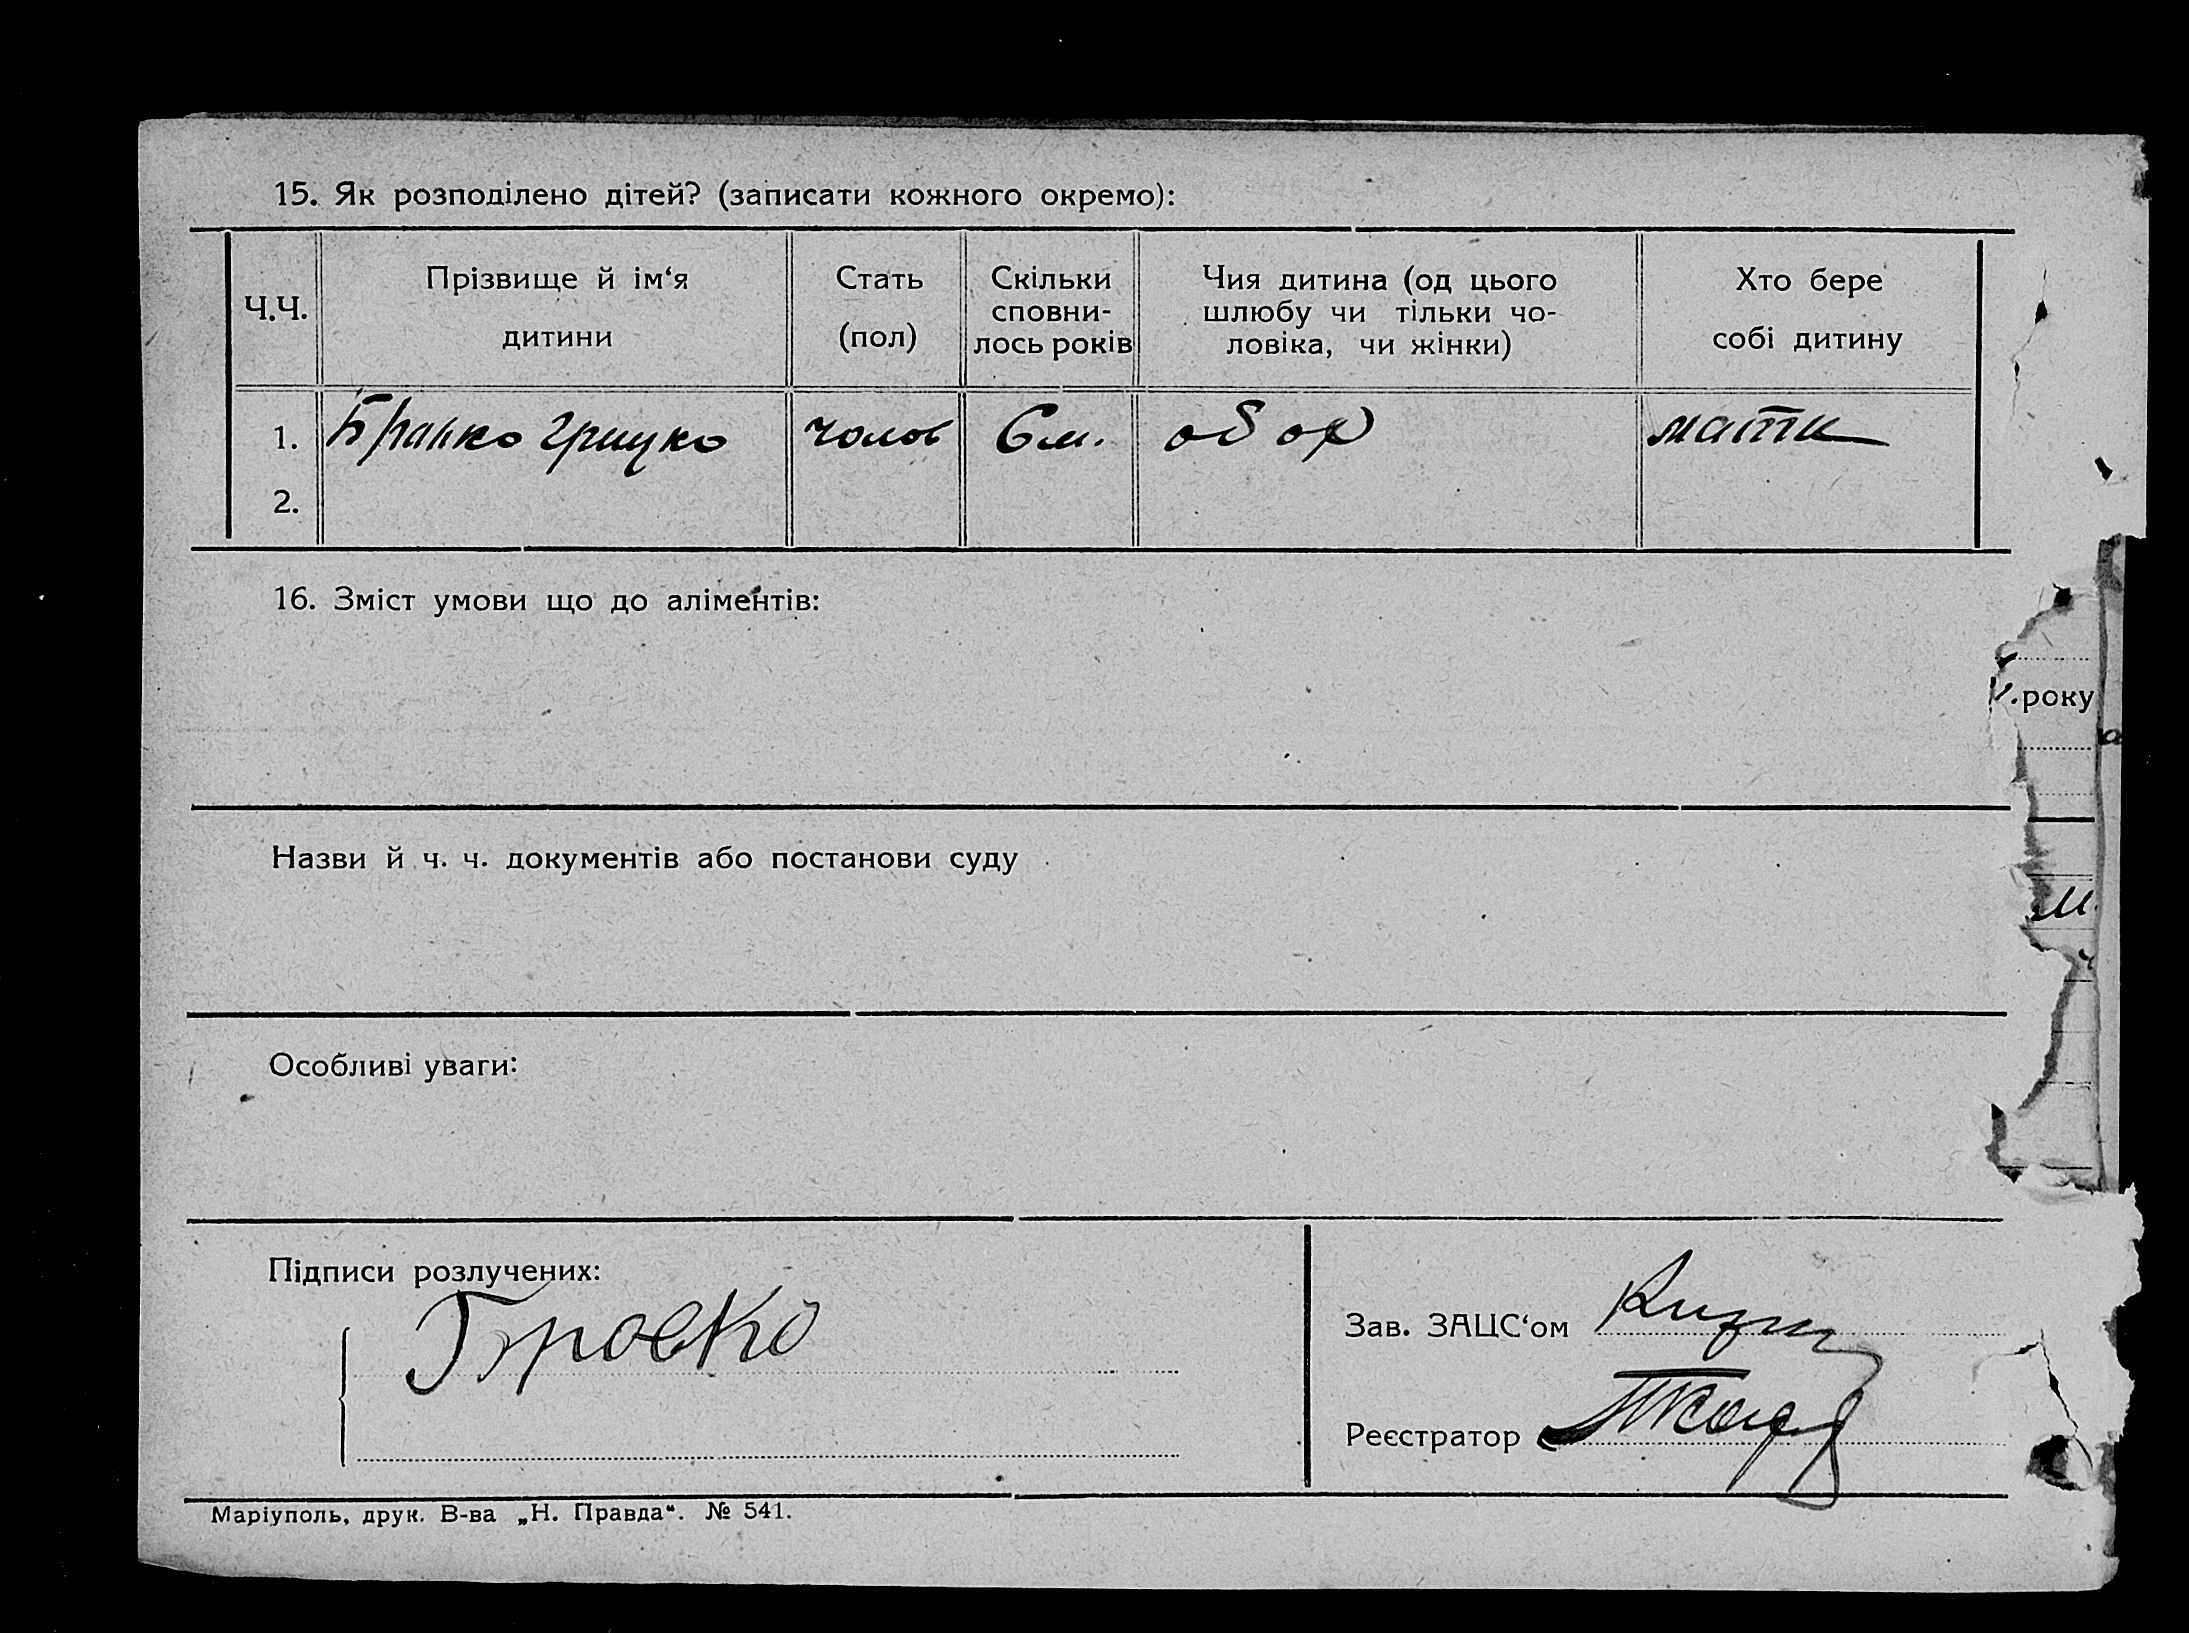 15. Як розподілено дітей? (записати кожного окремо):
Ч.Ч.
Прізвище й ім‘я
дитини
Стать
(пол)
Скільки
сповни-
лось років
Чия дитина (од цього
шлюбу чи тільки чо-
ловіка, чи жінки)
Хто бере
собі дитину
1. Грицько чолов 6 м. обох мати
2.
16. Зміст умови що до аліментів:
року
Назви й ч. ч. документів або постанови суду
м
Особливі уваги:
Підписи розлучених:
Зав. ЗАЦС‘ом
Реєстратор
Маріуполь, друк. В-ва „Н. Правда“. № 541.